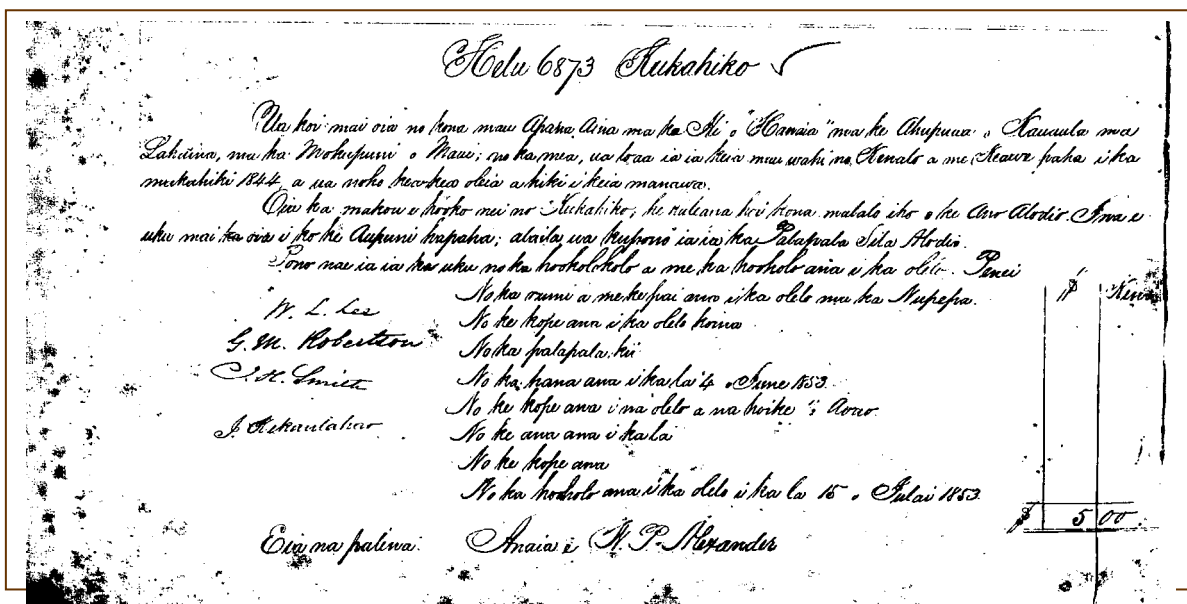 Helu 6873 Kukahiko ✓
Ua koi mai oia no kona mau Apana Aina ma ka Ili o "Hanaia" ma ke Ahupuaa o Kauaula ma
Lahaina, ma ka Mokupuni o Maui; no ka mea, ua loaa ia ia keia mau wahi no Kenalo a me Keawe paha i ka
makahiki 1844, a ua noho kea kea oleia a hiki i keia manawa.
Oia ka makou e hooko nei no Kukahiko, he kuleana koi kona malalo iho o ke Ano Alodio. Ina e
uku mai oia i ko ke Aupuni hapaha; alaila ua kupono ia ia ka Palapala Sila Alodio.
Pono nae ia ia ka uku no ka hookolokolo a me ka hooholo ana i ka olelo. Penei
No ka rumi a me ke pai ana i ka olelo ma ka Nupepa. $ Kene
W. L. Lee
No ke kope ana i ka olelo koina
G. M. Robertson
No ka palapala kii
J. H. Smith
No ka hana ana i ka la 4 o June 1853.
No ke kope ana i na olelo a na hoike
J. Kekaulahao
No ke ana ana i ka la
No ke kope ana
No ka hooholo ana i ka olelo i ka la 15 o Julai 1853
$ 5 00
Eia na palena: Anaia e W. P. Alexander